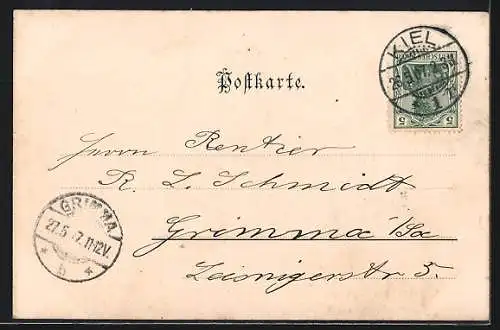 KIEL
Postkarte.
Herrn Rentier
R. L. Schmidt
GRIMMA
Grimma i/Sa
27.5 11-12V.
Leisnigerstr 5.
* b *
5 5